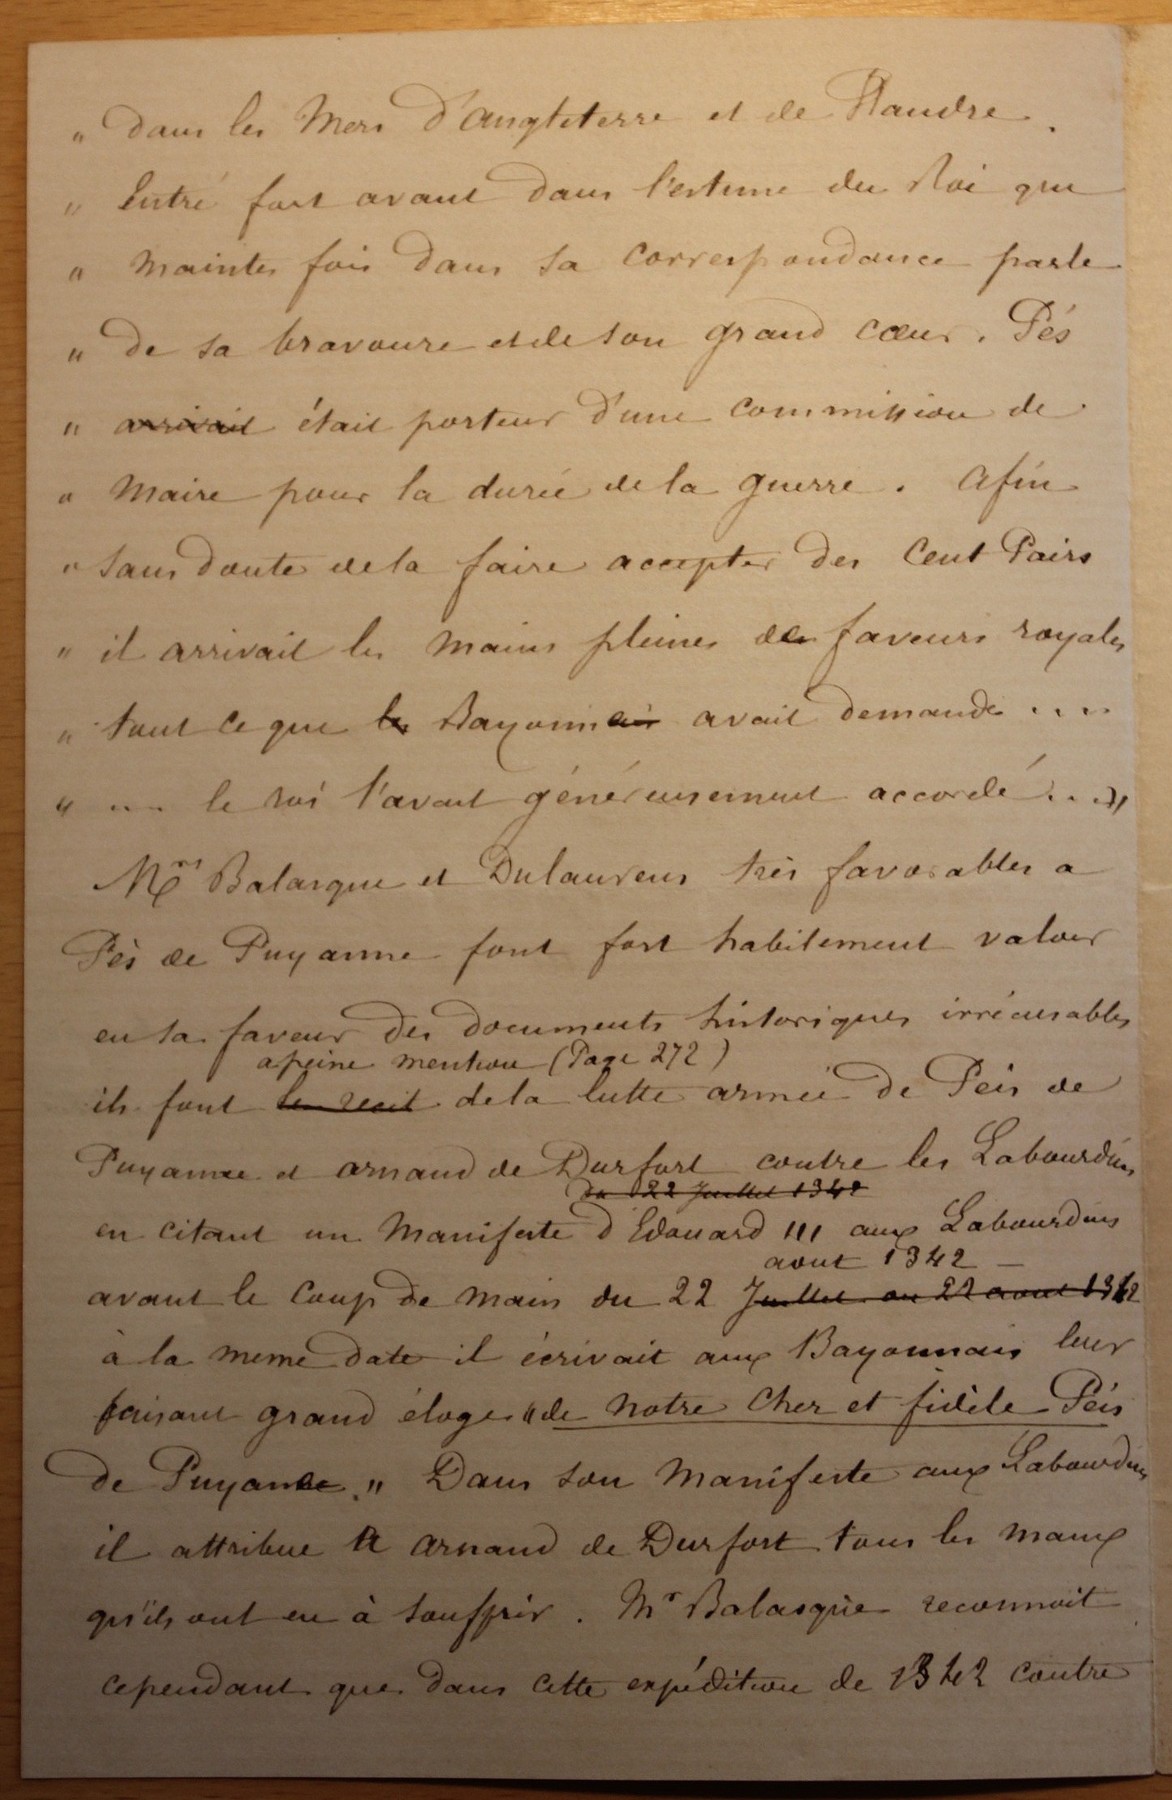 " dans les Mers d'Angleterre et de Flandre.
" Entré fort avant dans l'estime du Roi qui
" maintes fois dans sa correspondance parle
" de sa bravoure et de son grand cœur. Pés
" arrivait était porteur d'une commission de
" Maire pour la durée de la guerre. Afin
" sans doute de la faire accepter des Cent Pairs
" il arrivait les mains pleines de faveurs royales
" tout ce que le Bayonnais avait demandé ....
" .... le roi l'avait généreusement accordé ... "
Mrs Balasque et Dulaurens très favorables a
Pès de Puyanne font fort habilement valoir
en sa faveur des documents historiques irrécusables
apeine mention (Page 272)
ils font le recit de la lutte armée de Peis de
Puyanne et arnaud de Durfort contre les Labourdins
du 22 Juillet 1342
en citant un Manifeste d'Edouard III aux Labourdins
aout 1342 —
avant le Coup de main du 22 Juillet au 22 aout 1342
à la meme date il écrivait aux Bayonnais leur
faisant grand éloge "de notre cher et fidèle Péis
de Puyanne." Dans son Manifeste aux Labourdins
il attribue a Arnaud de Durfort tous les maux
qu'ils ont eu à souffrir. Mr Balasque reconnait
cependant que dans cette expédition de 1342 contre